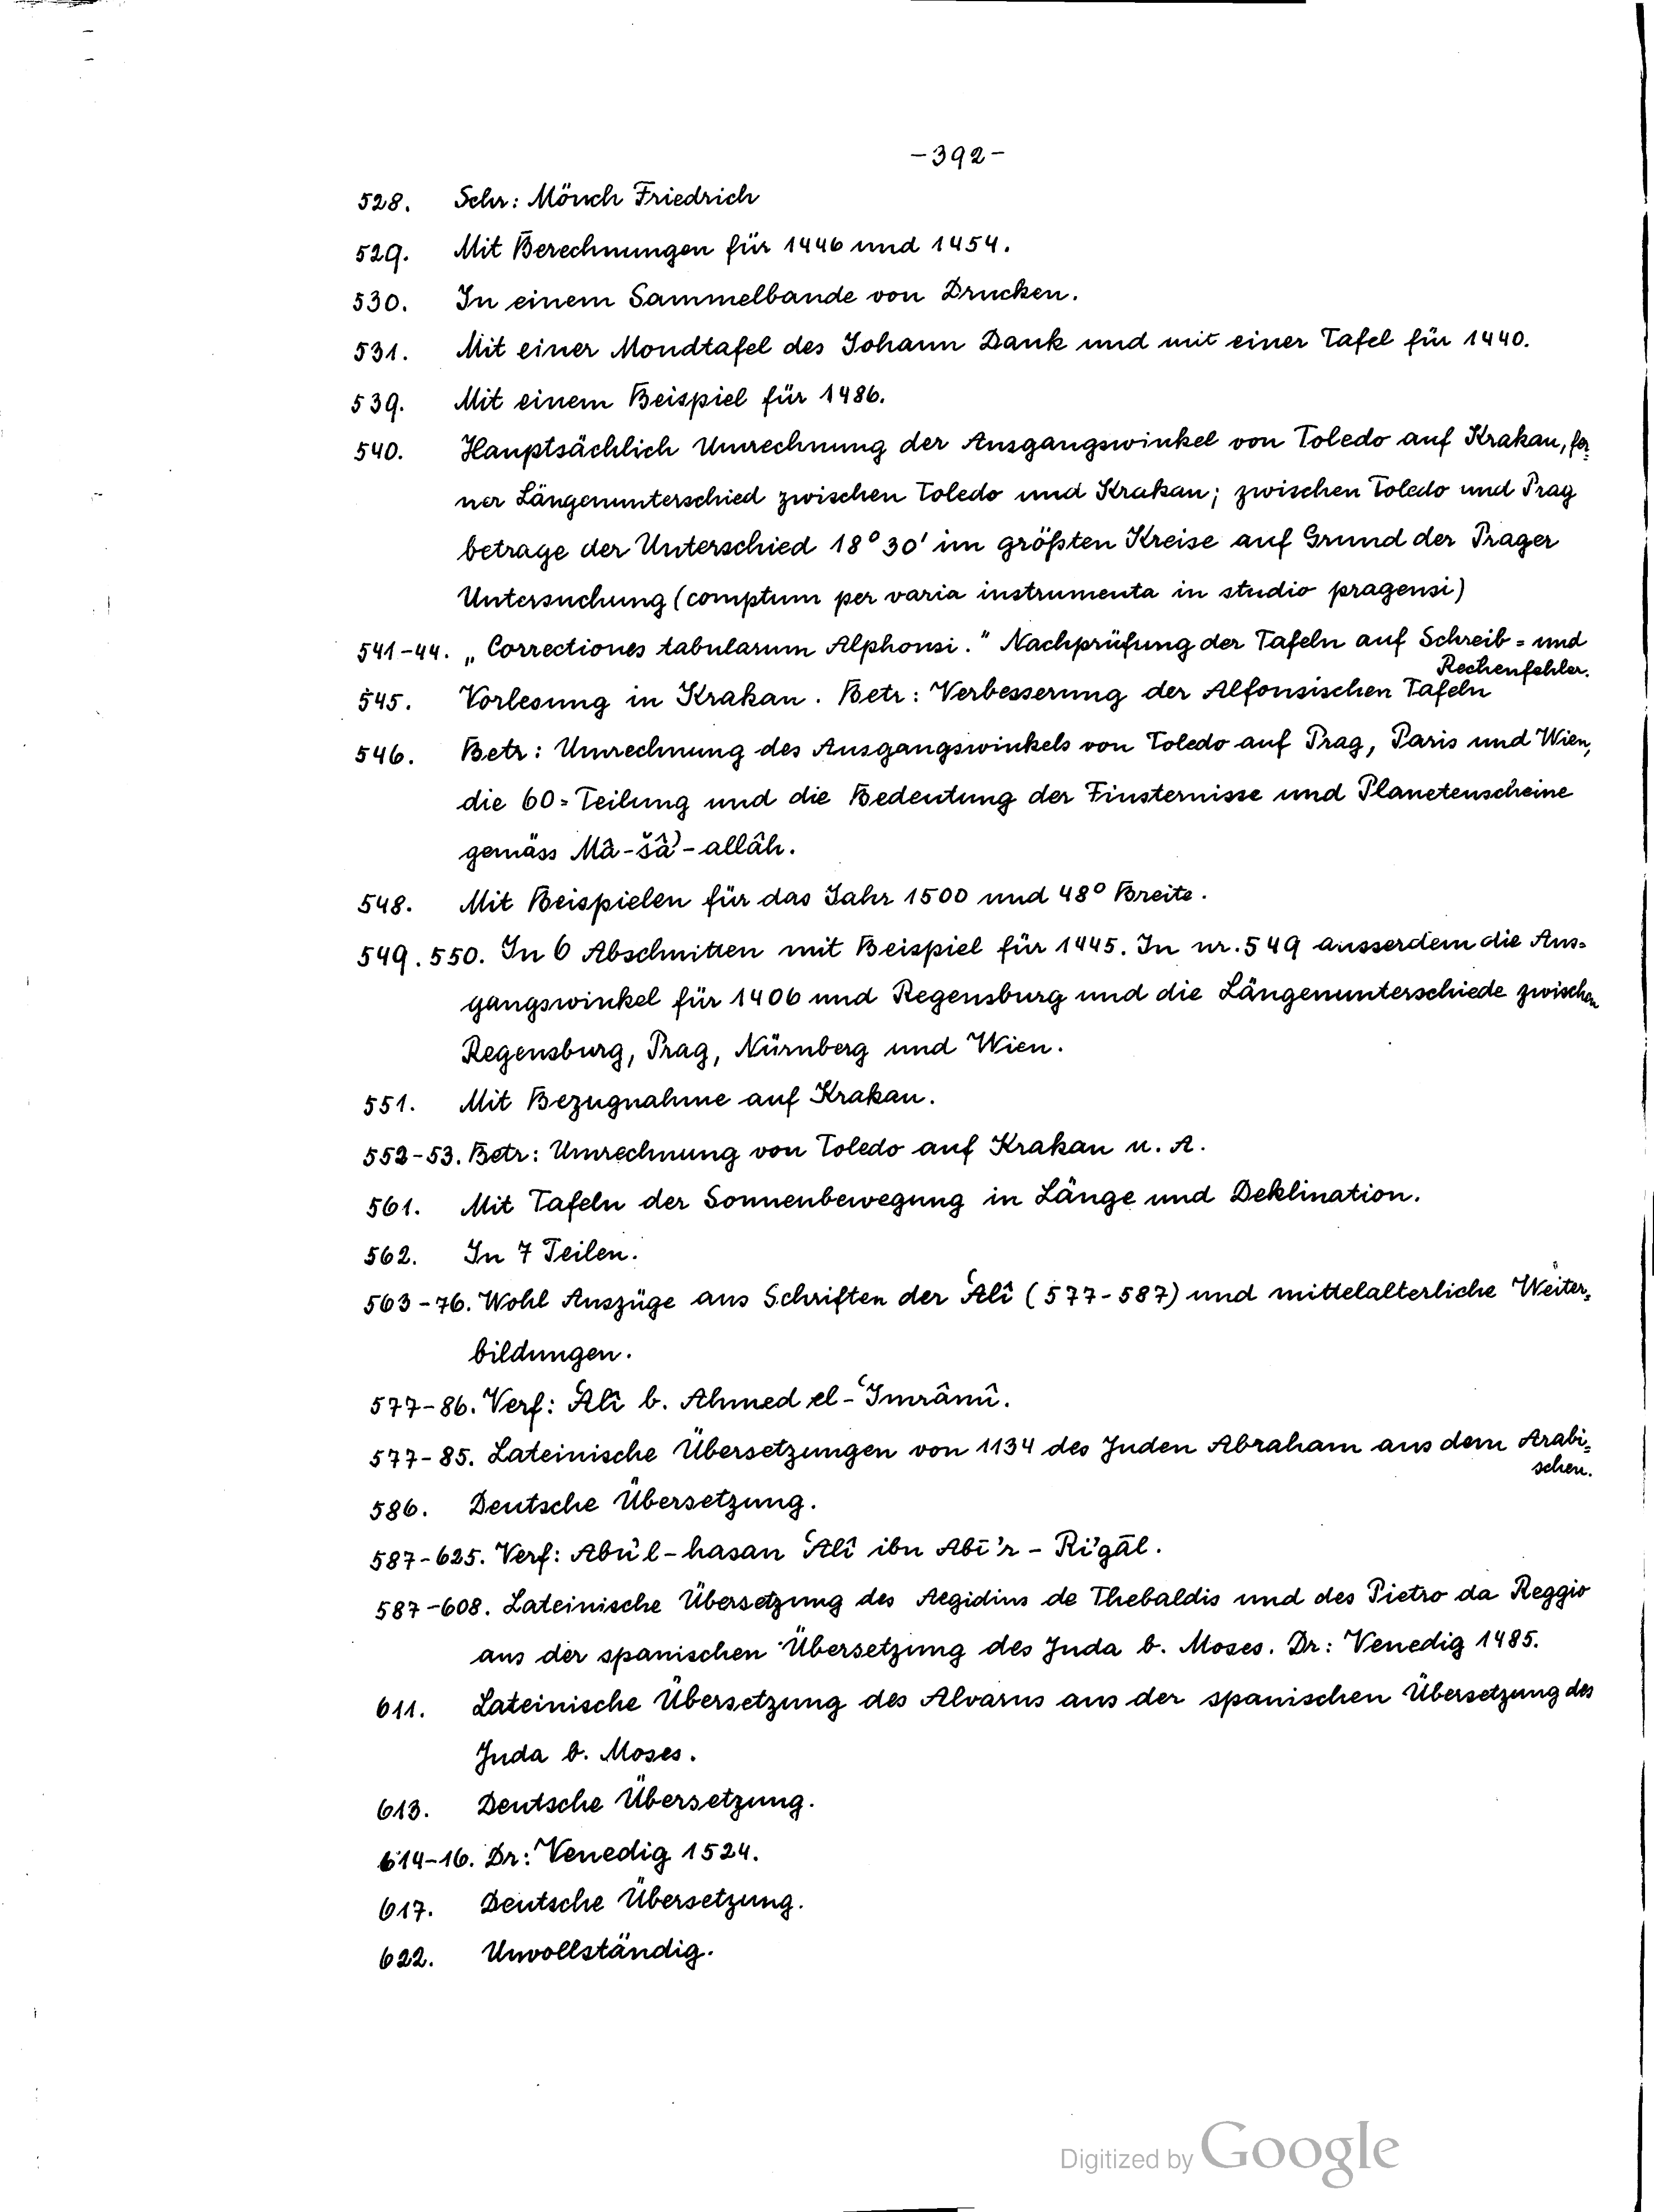 -392-
528. Schr: Mönch Friedrich
529. Mit Berechnungen für 1446 und 1454.
530. In einem Sammelbande von Drucken.
531. Mit einer Mondtafel des Johann Dank und mit einer Tafel für 1440.
539. Mit einem Beispiel für 1486.
540. Hauptsächlich Umrechnung der Ausgangswinkel von Toledo auf Krakau, fer-
ner Längenunterschied zwischen Toledo und Krakau; zwischen Toledo und Prag
betrage der Unterschied 18° 30' im größten Kreise auf Grund der Prager
Untersuchung (comptum per varia instrumenta in studio pragensi)
541-44. „Correctiones tabularum Alphonsi." Nachprüfung der Tafeln auf Schreib- und
Rechenfehler.
545. Vorlesung in Krakau. Betr: Verbesserung der Alfonsischen Tafeln
546. Betr: Umrechnung des Ausgangswinkels von Toledo auf Prag, Paris und Wien,
die 60-Teilung und die Bedeutung der Finsternisse und Planetenscheine
gemäss Mâ-šâ'-allâh.
548. Mit Beispielen für das Jahr 1500 und 48° Breite.
549. 550. In 6 Abschnitten mit Beispiel für 1445. In nr. 549 ausserdem die Aus-
gangswinkel für 1406 und Regensburg und die Längenunterschiede zwischen
Regensburg, Prag, Nürnberg und Wien.
551. Mit Bezugnahme auf Krakau.
552-53. Betr: Umrechnung von Toledo auf Krakau u. A.
561. Mit Tafeln der Sonnenbewegung in Länge und Deklination.
562. In 7 Teilen.
563-76. Wohl Auszüge aus Schriften der ʿAlî (577-587) und mittelalterliche Weiter-
bildungen.
577-86. Verf: ʿAlî b. Ahmed el-ʿImrânî.
577-85. Lateinische Übersetzungen von 1134 des Juden Abraham aus dem Arabi-
schen.
586. Deutsche Übersetzung.
587-625. Verf: Abû'l-hasan ʿAlî ibn Abî'r-Riǧâl.
587-608. Lateinische Übersetzung des Aegidius de Thebaldis und des Pietro da Reggio
aus der spanischen Übersetzung des Juda b. Moses. Dr: Venedig 1485.
611. Lateinische Übersetzung des Alvarus aus der spanischen Übersetzung des
Juda b. Moses.
613. Deutsche Übersetzung.
614-16. Dr: Venedig 1524.
617. Deutsche Übersetzung.
622. Unvollständig.
Digitized by Google